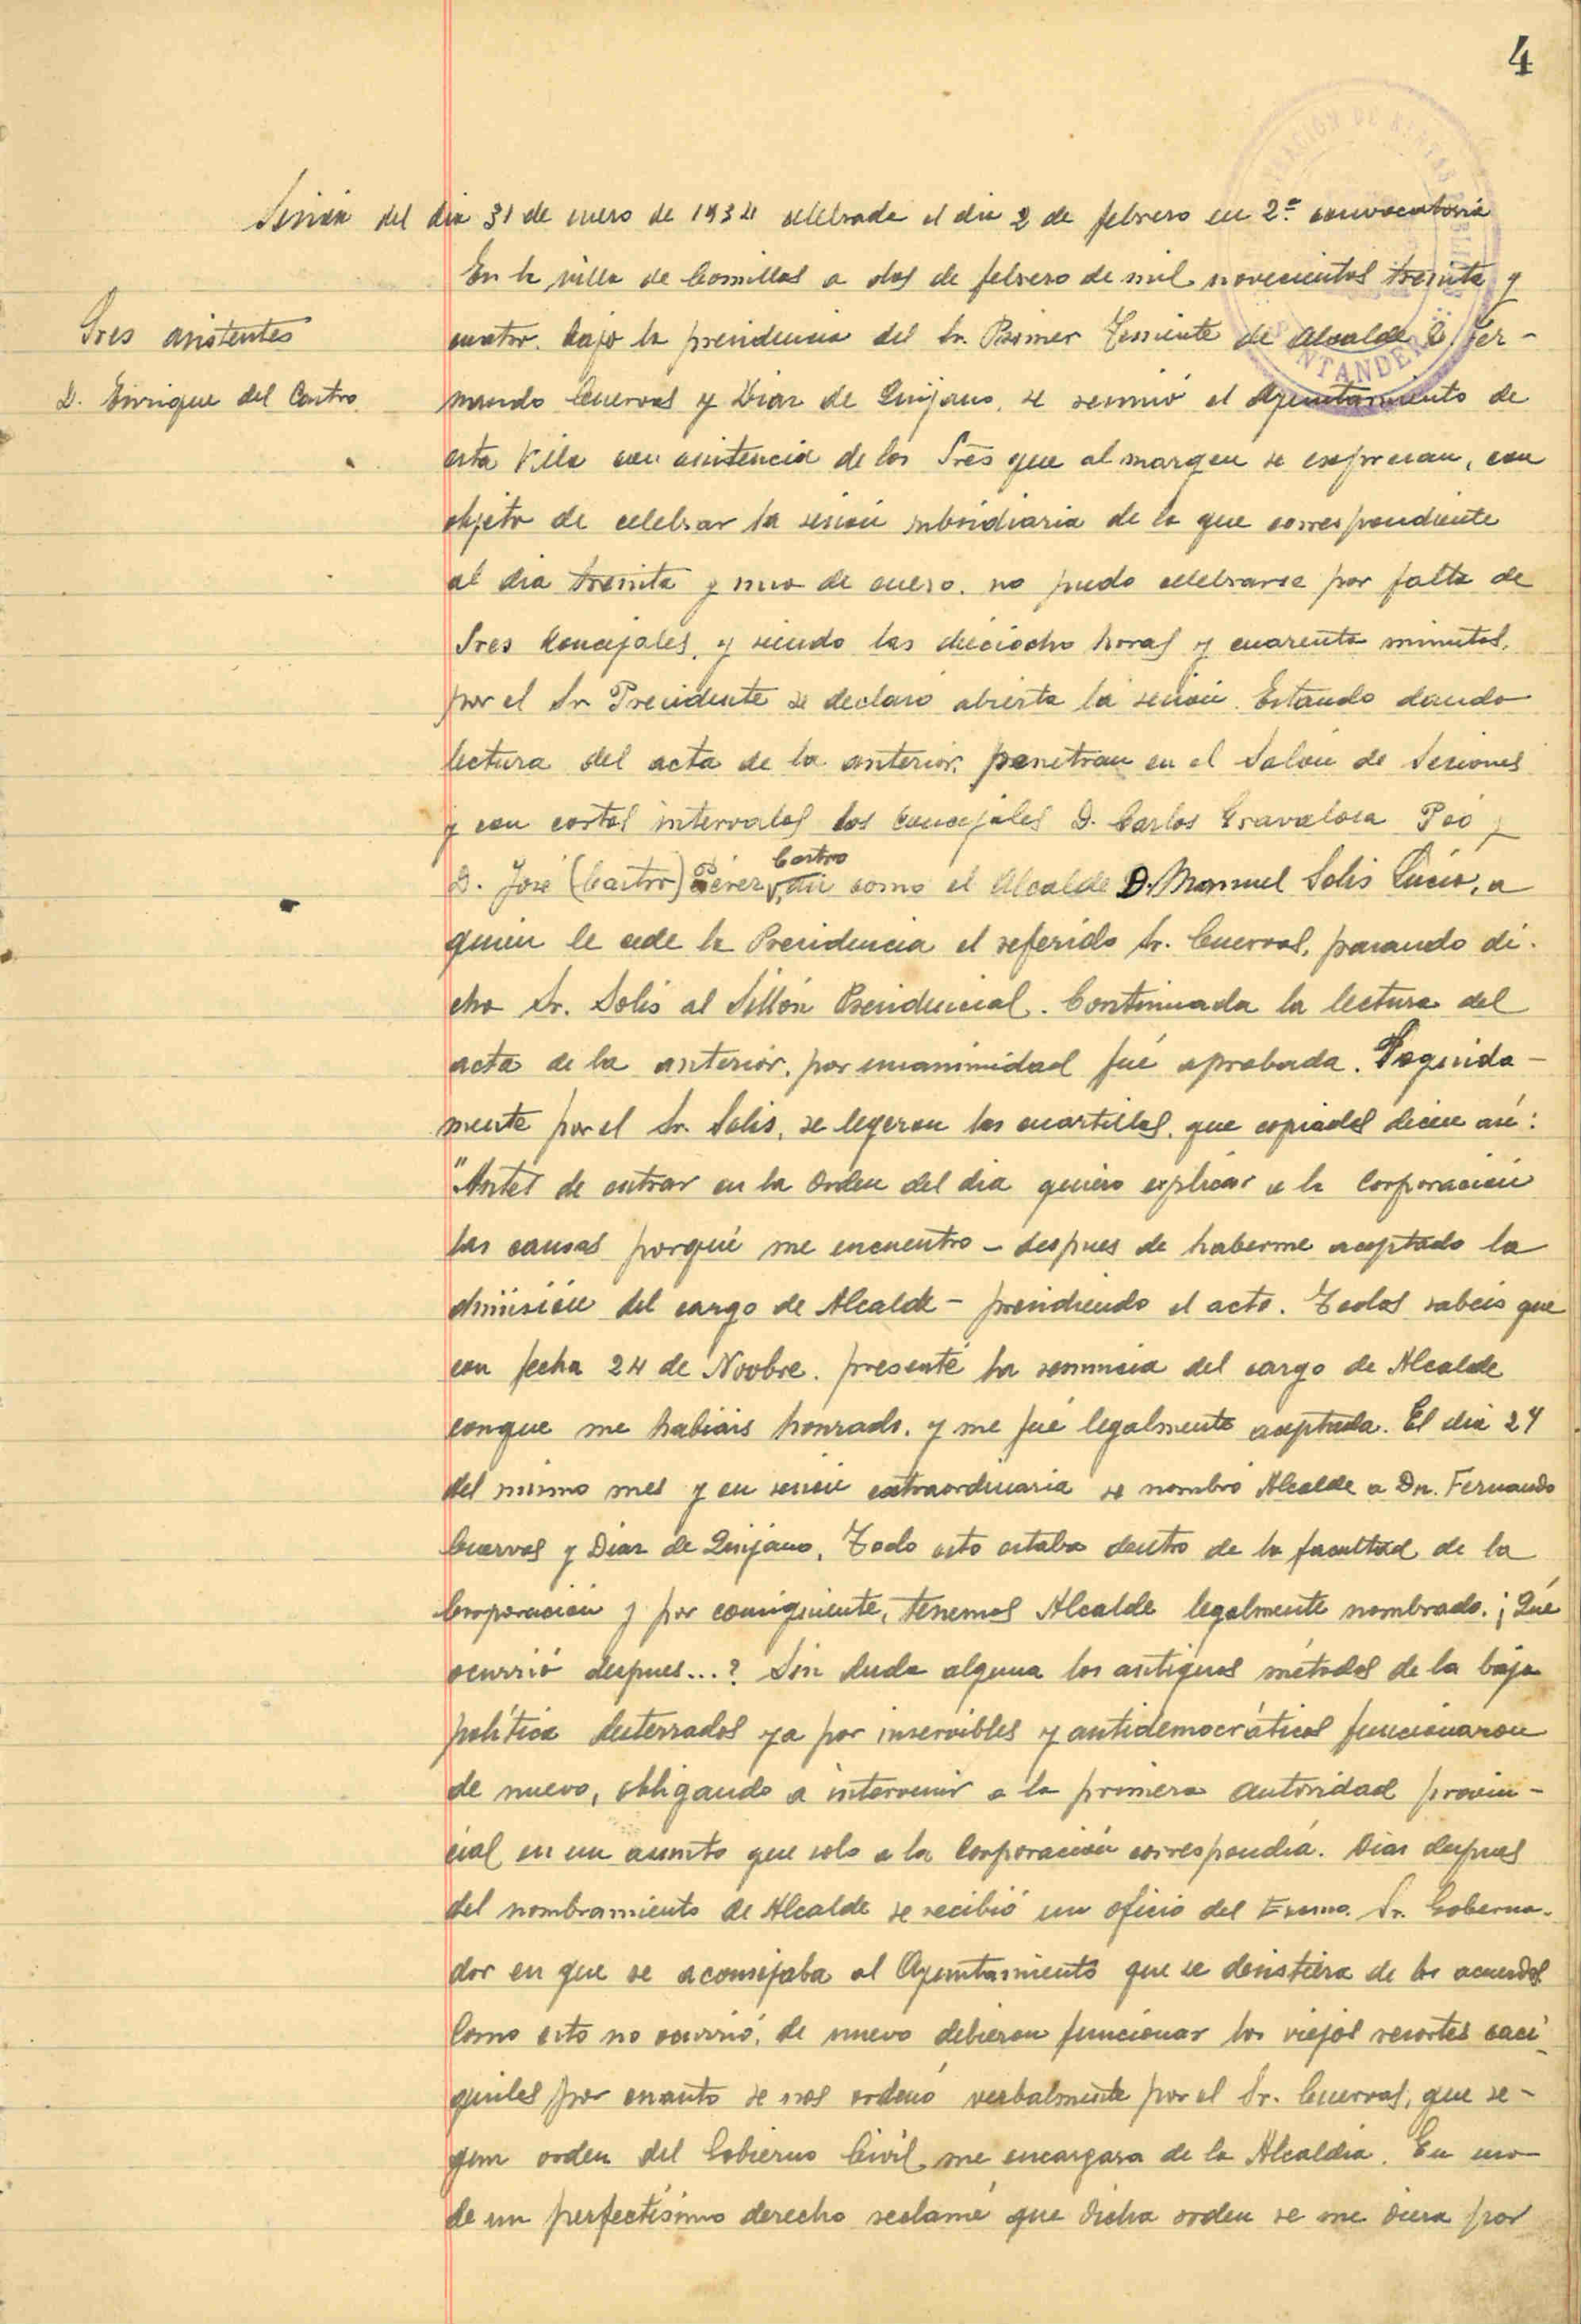 4
Sesión del dia 31 de enero de 1934 celebrada el dia 2 de febrero en 2ª convocatoria
En la villa de Comillas a dos de febrero de mil novecientos treinta y
Sres asistentes
cuatro, bajo la presidencia del Sr. Primer Teniente de Alcalde D. Fer-
D. Enrique del Castro
nando Cuervas y Diaz de Quijano, se reunió el Ayuntamiento de
esta Villa con asistencia de los Sres que al margen se expresan, con
objeto de celebrar la sesión subsidiaria de la que correspondiente
al dia treinta y uno de enero, no pudo celebrarse por falta de
Sres Concejales, y siendo las dieciocho horas y cuarenta minutos,
por el Sr Presidente se declaró abierta la sesión. Estando dando
lectura del acta de la anterior, penetran en el Salón de Sesiones
y con cortos intervalos los Concejales D. Carlos Gravalosa Peó y
D. José (Castro) Pérez Castro, asi como el Alcalde D. Manuel Solis Lucio, a
quien le cede la Presidencia el referido Sr. Cuervas, pasando di-
cho Sr. Solis al Sillón Presidencial. Continuada la lectura del
acta de la anterior, por unanimidad fué aprobada. Seguida-
mente por el Sr. Solis, se leyeron las cuartillas, que copiadas dicen asi:
"Antes de entrar en la Orden del dia quiero explicar a la Corporación
las causas porqué me encuentro - despues de haberme aceptado la
dimisión del cargo de Alcalde - presidiendo el acto. Todos sabeis que
con fecha 24 de Novbre. presenté la renuncia del cargo de Alcalde
conque me habiais honrado, y me fué legalmente aceptada. El dia 27
del mismo mes y en sesión extraordinaria se nombró Alcalde a Dn. Fernando
Cuervas y Diaz de Quijano. Todo esto estaba dentro de la facultad de la
Corporación y por consiguiente, tenemos Alcalde legalmente nombrado. ¡Qué
ocurrió despues...? Sin duda alguna los antiguos métodos de la baja
política desterrados ya por inservibles y antidemocráticos funcionaron
de nuevo, obligando a intervenir a la primera autoridad provin-
cial en un asunto que solo a la Corporación correspondia. Dias despues
del nombramiento de Alcalde se recibió un oficio del Exsmo. Sr. Goberna-
dor en que se aconsejaba al Ayuntamiento que se desistiera de los acuerdos
Como esto no ocurrió, de nuevo debieron funcionar los viejos resortes caci-
quiles por cuanto se nos ordenó verbalmente por el Sr. Cuervas, que se-
gun orden del Gobierno Civil, me encargara de la Alcaldia. En uso
de un perfectísimo derecho reclamé que dicha orden se me diera por